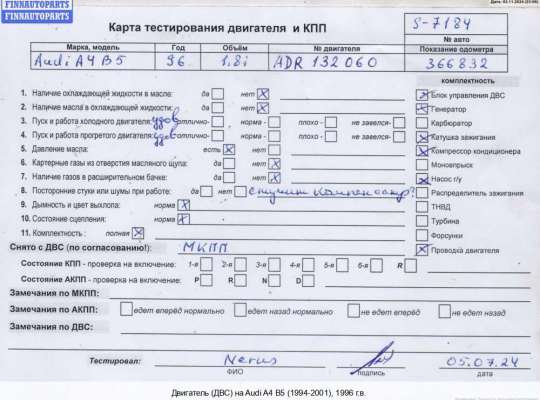 FINNAUTOPARTS
FINNAUTOPARTS
Дата: 02.11.2024
Карта тестирования двигателя и КПП
S-7184
№ авто
Марка, модель Год Объём № двигателя Показание одометра
Audi A4 B5 96 1,8i ADR 132060 366832
комплектность
1. Наличие охлаждающей жидкости в масле: да нет
Блок управления ДВС
2. Наличие масла в охлаждающей жидкости: да нет
Генератор
3. Пуск и работа холодного двигателя: удов отлично- норма - плохо - не завелся-
Карбюратор
4. Пуск и работа прогретого двигателя: удов отлично- норма - плохо - не завелся-
Катушка зажигания
5. Давление масла: есть нет
Компрессор кондиционера
6. Картерные газы из отверстия масляного щупа: да нет
Моновпрыск
7. Наличие газов в расширительном бачке: да нет
Насос г/у
8. Посторонние стуки или шумы при работе: да нет Стучит компенсатор?
Распределитель зажигания
9. Дымность и цвет выхлопа: норма
ТНВД
10. Состояние сцепления: норма
Турбина
11. Комплектность : полная
Форсунки
Снято с ДВС (по согласованию!): МКПП
Проводка двигателя
Состояние КПП - проверка на включение: 1-я 2-я 3-я 4-я 5-я 6-я R
Состояние АКПП - проверка на включение: P R N D
Замечания по МКПП:
Замечания по АКПП: едет вперёд нормально едет назад нормально не едет вперёд не едет назад
Замечания по ДВС:
Тестировал: Nerus 05.07.24
ФИО подпись дата
Двигатель (ДВС) на Audi A4 B5 (1994-2001), 1996 г.в.